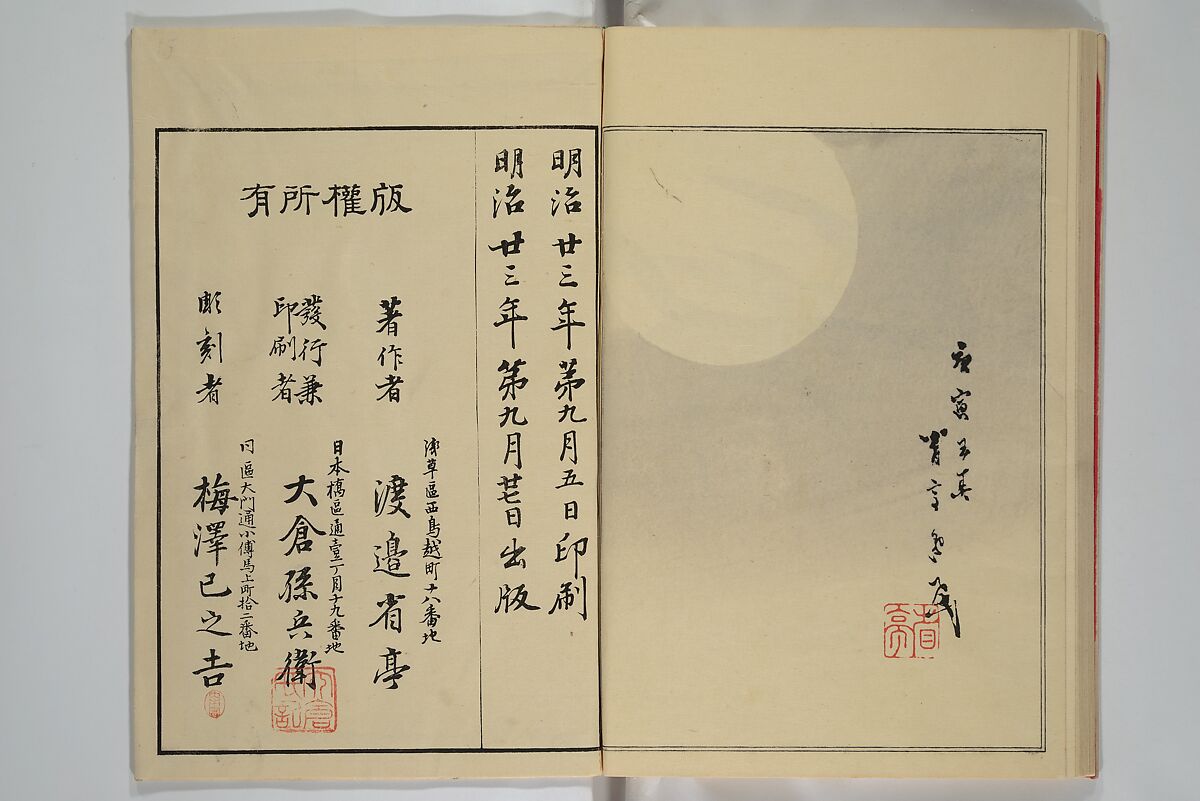 庚寅
省亭
省亭
明治廿三年第九月五日印刷
明治廿三年第九月廿七日出版
版權所有
淺草區西鳥越町十八番地
著作者 渡邉省亭
日本橋區通壹丁目十九番地
發行兼印刷者 大倉孫兵衛
同區大門通小傳馬上町拾二番地
彫刻者 梅澤巳之吉